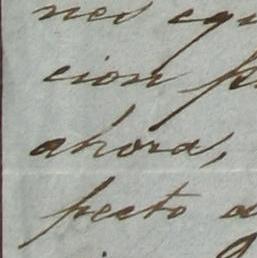 nes equ
cion p
ahora,
pecto a